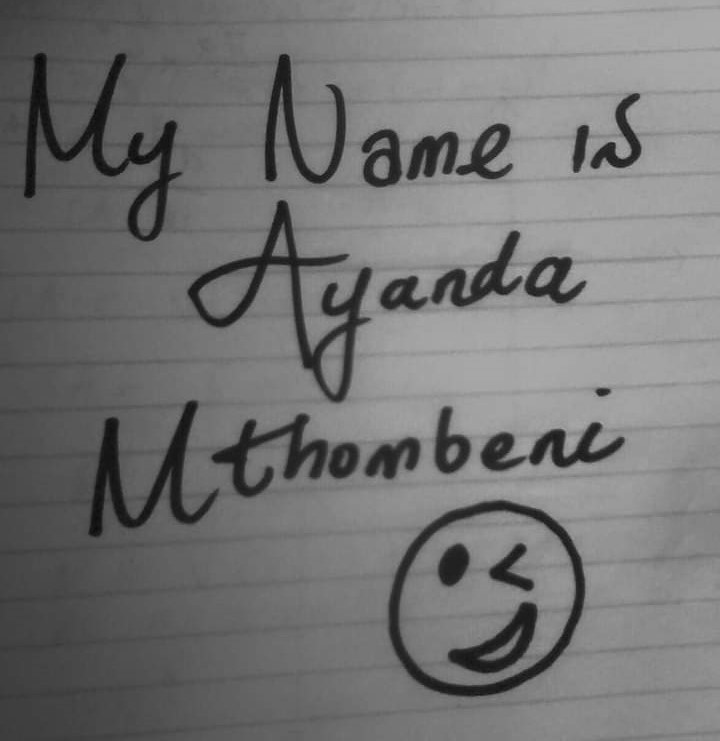 My Name is
Ayanda
Mthombeni